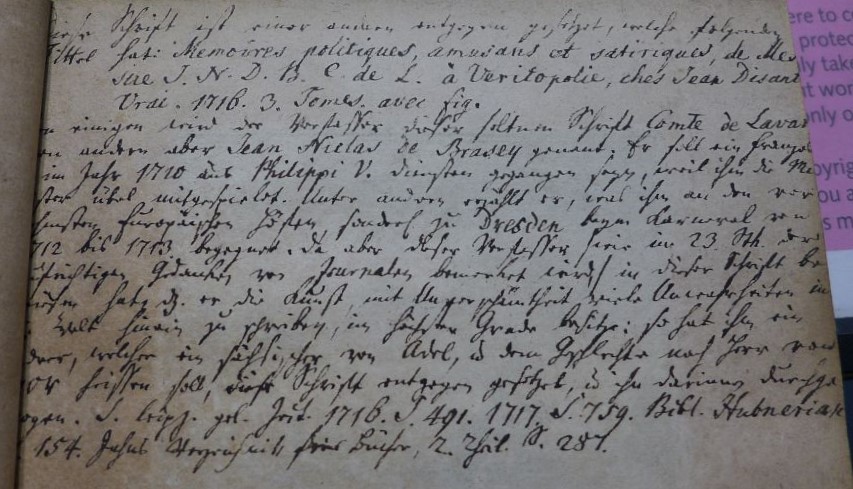 diese Schrift ist einer andern entgegen gesetzet, welche folgenden
Tittel hat: Memoires politiques, amusans et satiriques, de Mes
sire J. N. D. B. C. de L. à Veritopolie, chés Jean Disant
Vrai. 1716. 3. Tomes. avec fig.
einigen wird der Verfasser dieser seltnen Schrift Comte de Lavas
andern aber Jean Niclas de Brasey genent. Er soll ein Franzos
im Jahr 1710 aus Philippi V. diensten gegangen seyn, weil ihm die Mi
ster übel mitgespielet. Unter andern erzählt er, was ihm an den vor
nehmsten Europäischen Höfen, sonderl. zu Dresden beym Karneval von
712 bis 1713 begegnet. Da aber dieser Verfasser, wie im 23 Th. der
aufrichtigen Gedanken von Journalen bemerket wird, in dieser Schrift be
wiesen hat, dz. er die Kunst, mit Unverschämtheit viele Unwahrheiten in
Welt hinein zu schreiben, im höchsten Grade besitze: so hat ihm ein
welcher ein sächsischer von Adel, u dem Geschlechte nach Herr von
heissen soll, diese Schrift entgegen gesetzet, u ihn darinnen durchge
ogen. S. Leipz. gel. Zeit. 1716. S. 491. 1717. S. 759. Bibl. Hubneriana
154. Jahns Verzeichnis Bücher, 2. Theil. S. 287.
here to co
protec
ly take
t wor
nly o
opyrig
ou a
s m